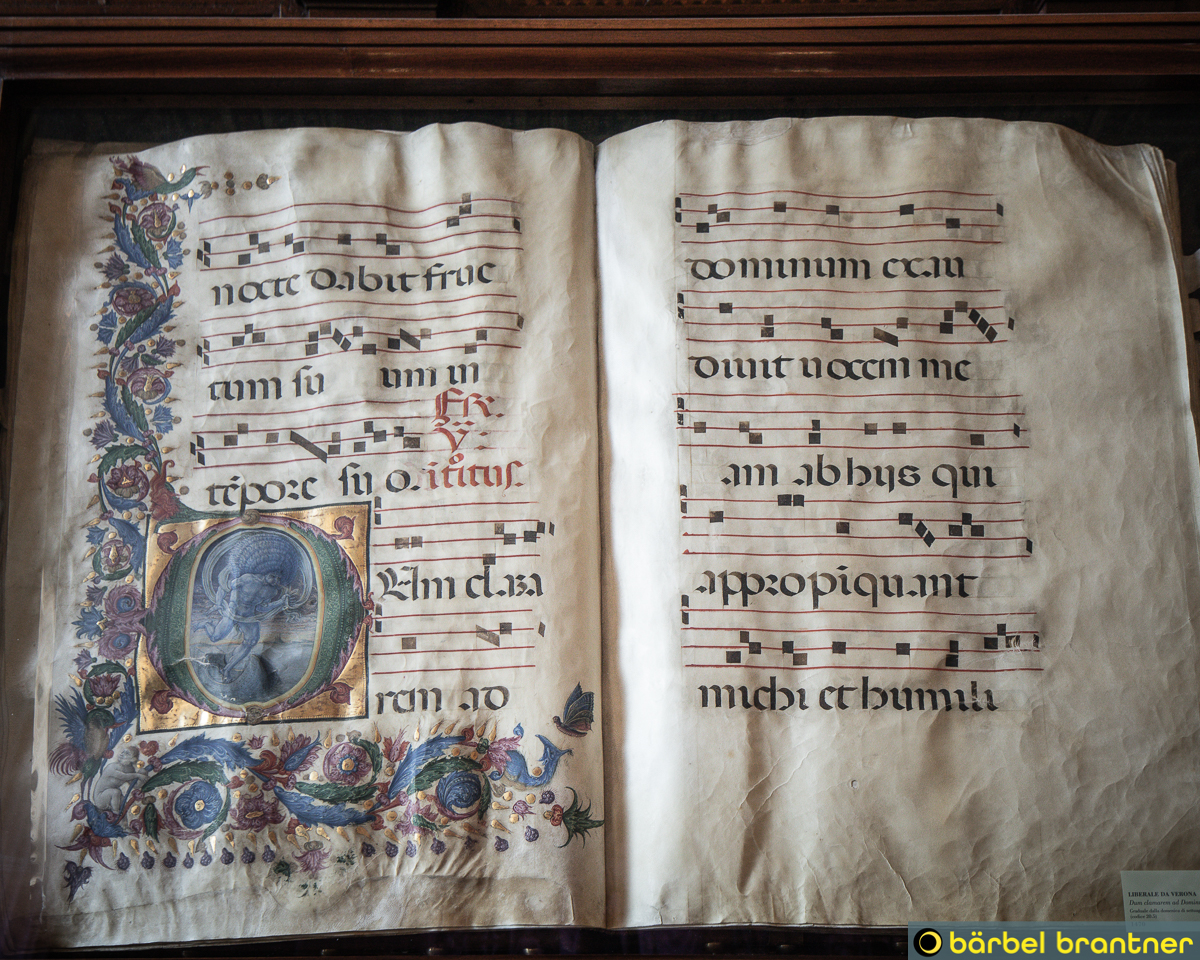 nocte dabit fruc
tum su um in
Fer.
V.
tēpore su o. itrotus.
Dum clama
rem ad
dominum exau
diuit uocem me
am ab hijs qui
appropīquant
michi et humili
LIBERALE DA VERONA
Dum clamarem ad Domin
bärbel brantner